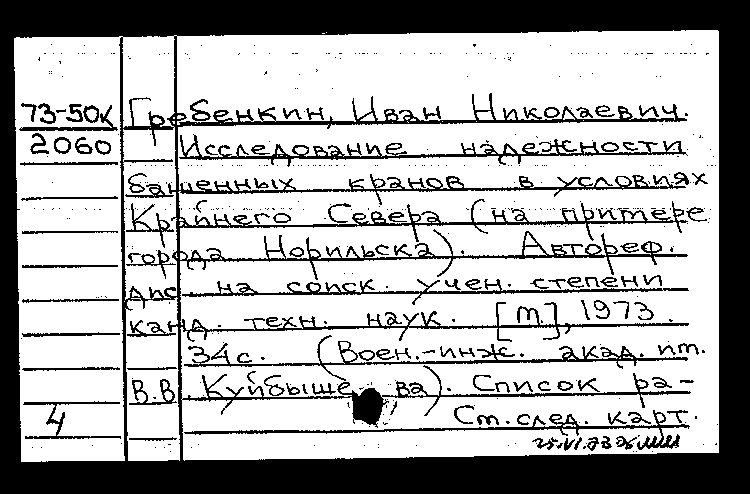 73-50к Гребенкин, Иван Николаевич.
2060 Исследование надежности
башенных кранов в условиях
Крайнего Севера (на примере
города Норильска). Автореф.
дис. на соиск. учен. степени
канд. техн. наук. [М.], 1973.
34с. (Воен.-инж. акад. им.
В.В. Куйбышева). Список ра-
4 См. след. карт.